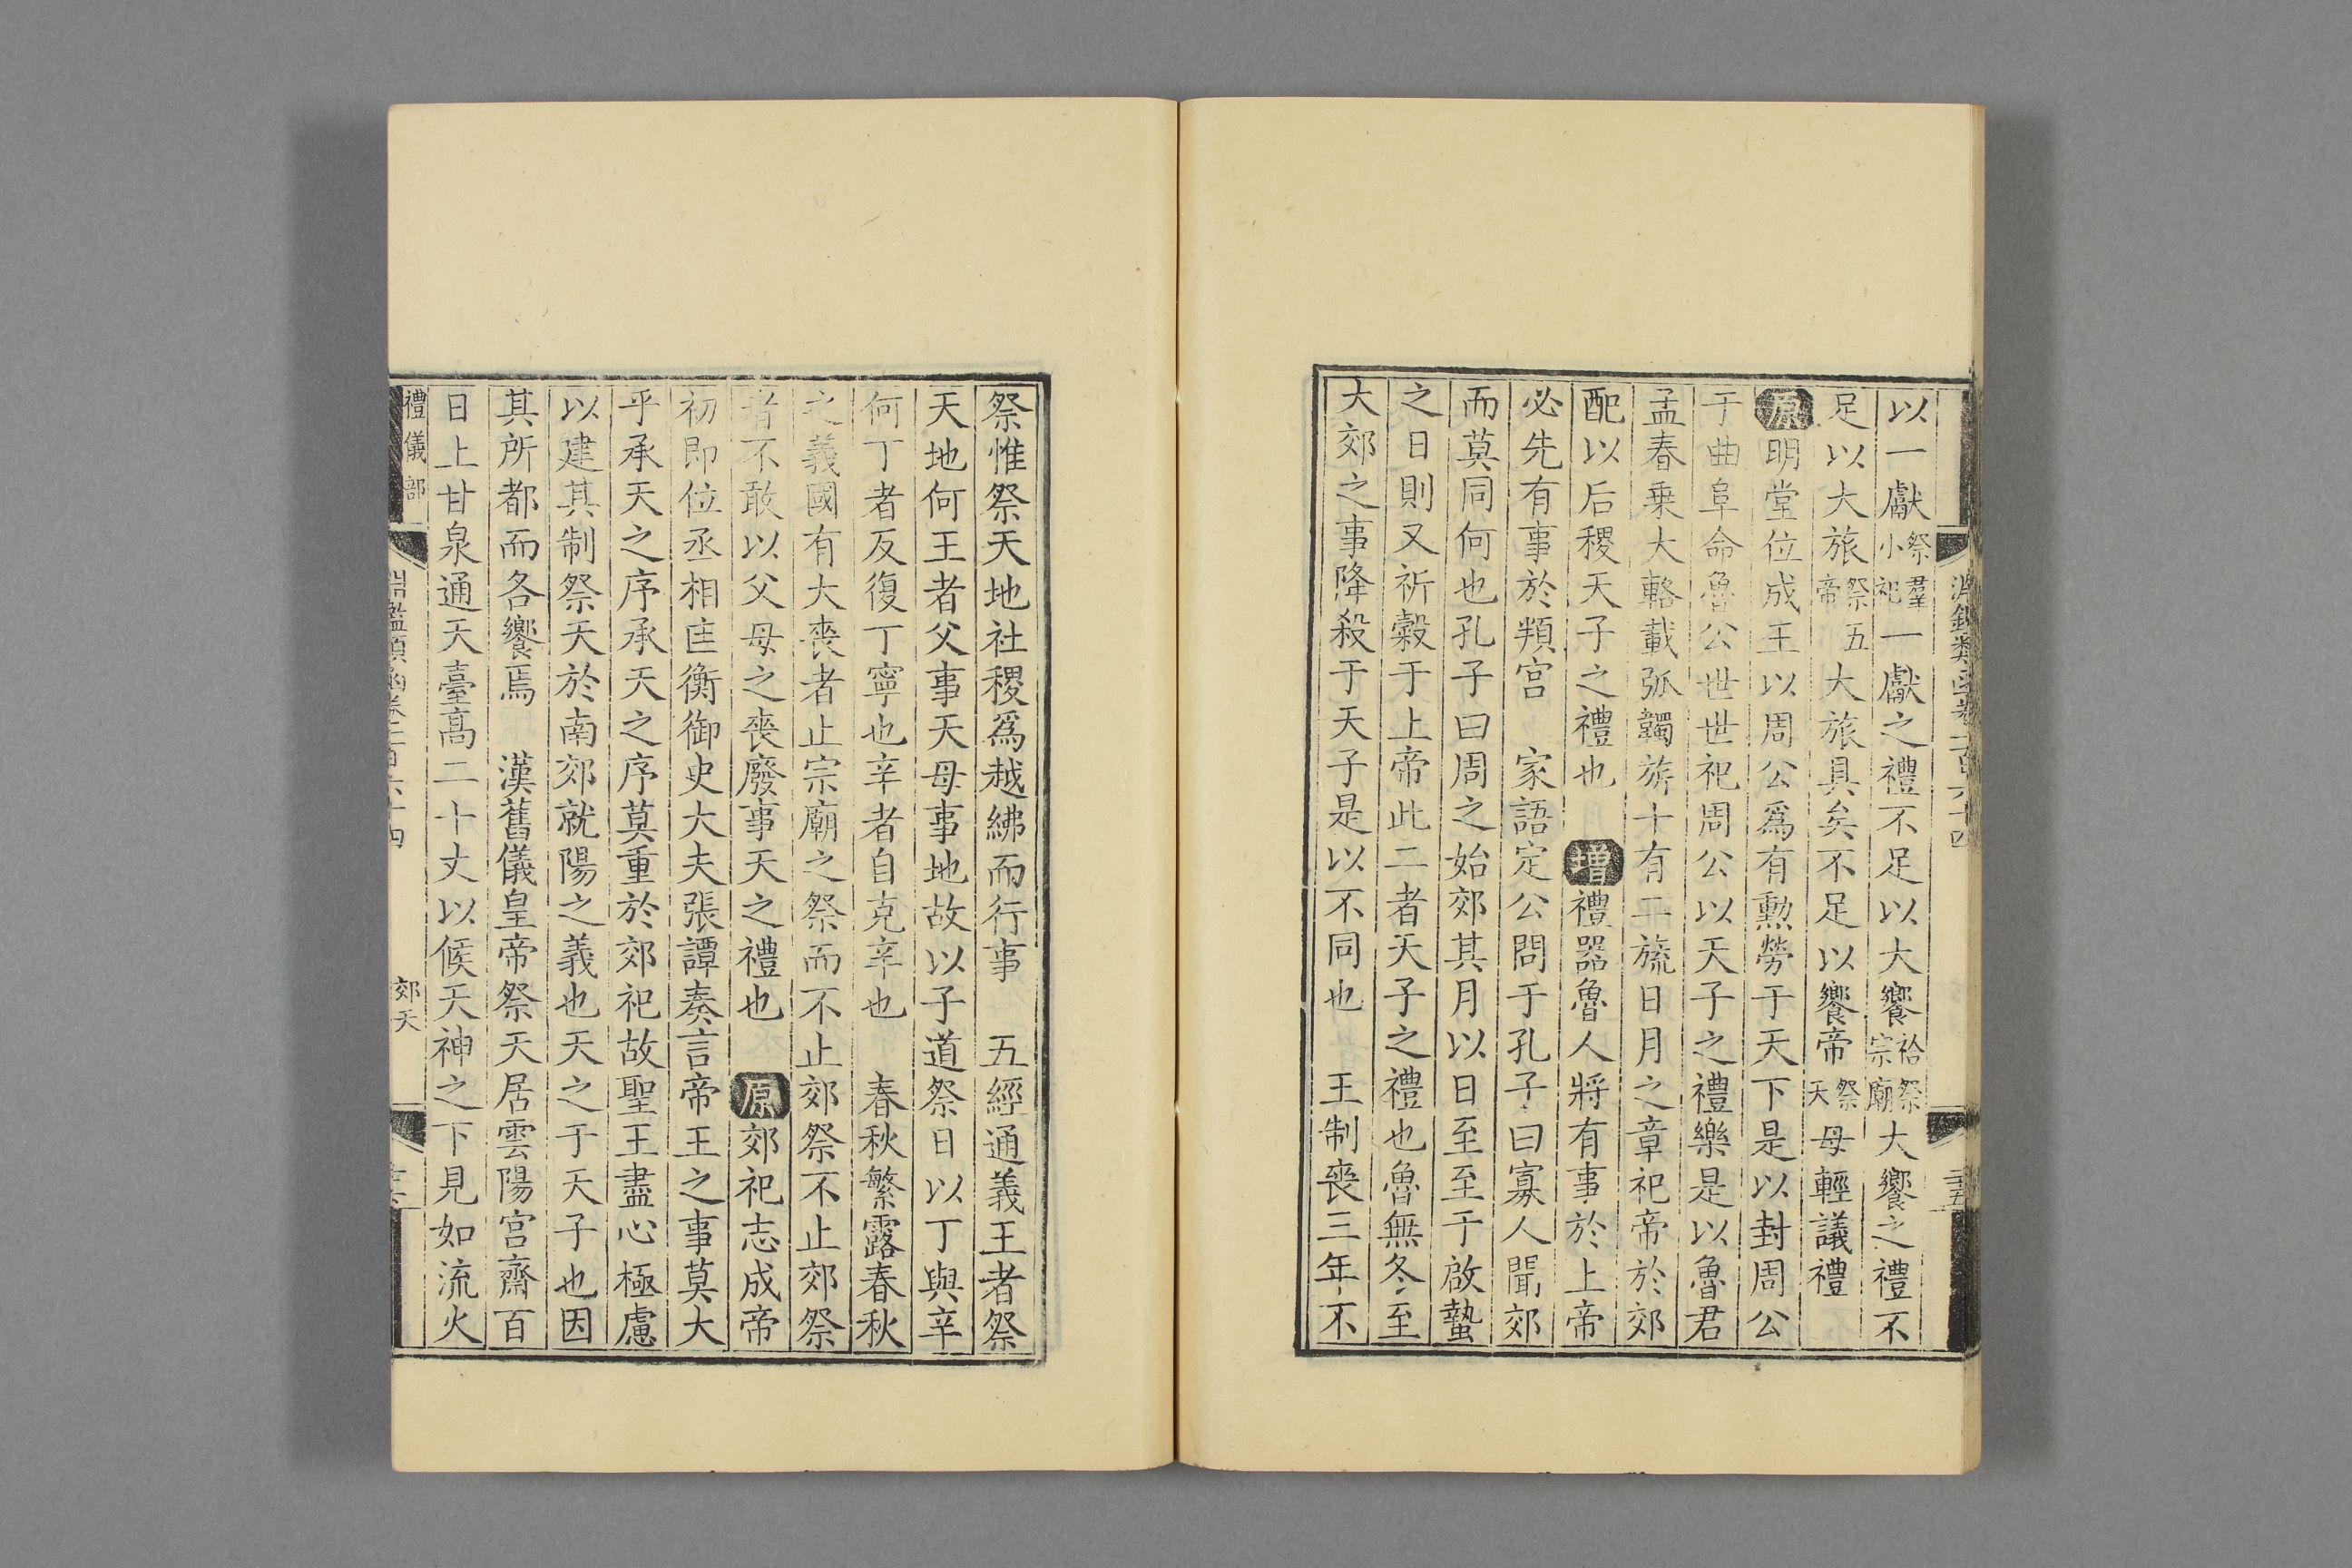 淵鑑類函卷二百六十四
三十五
以一獻祭羣小祀一獻之禮不足以大饗祫祭宗廟大饗之禮不
足以大旅祭五帝大旅具矣不足以饗帝祭天毋輕議禮
原明堂位成王以周公爲有勲勞于天下是以封周公
于曲阜命魯公世世祀周公以天子之禮樂是以魯君
孟春乗大輅載弧韣旂十有二旒日月之章祀帝於郊
配以后稷天子之禮也 增禮器魯人將有事於上帝
必先有事於頖宫 家語定公問于孔子曰寡人聞郊
而莫同何也孔子曰周之始郊其月以日至至于啟蟄
之日則又祈糓于上帝此二者天子之禮也魯無冬至
大郊之事降殺于天子是以不同也 王制喪三年不
祭惟祭天地社稷爲越紼而行事 五經通義王者祭
天地何王者父事天母事地故以子道祭日以丁與辛
何丁者反復丁寧也辛者自克辛也 春秋繁露春秋
之義國有大喪者止宗廟之祭而不止郊祭不止郊祭
者不敢以父母之喪廢事天之禮也 原郊祀志成帝
初即位丞相匡衡御史大夫張譚奏言帝王之事莫大
乎承天之序承天之序莫重於郊祀故聖王盡心極慮
以建其制祭天於南郊就陽之義也天之于天子也因
其所都而各饗焉 漢舊儀皇帝祭天居雲陽宫齋百
日上甘泉通天臺高二十丈以候天神之下見如流火
禮儀部
淵鑑類函卷二百六十四
郊天